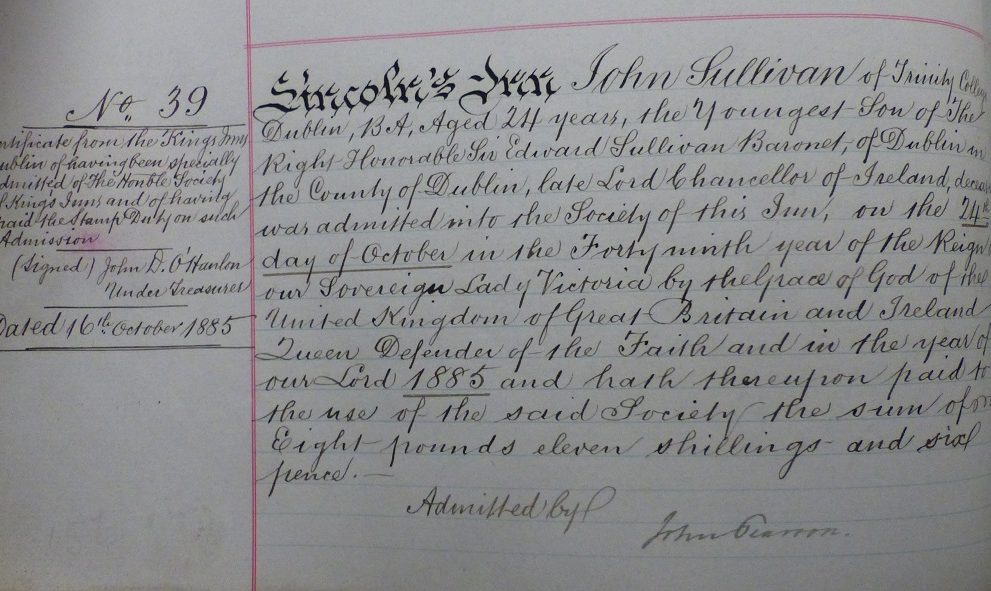 No. 39
ntificate from the Kings Inns
ublin of having been specially
dmitted of The Honble Society
f Kings Inns and of having
paid the Stamp Duty on such
Admission
(Signed) John D. O'Hanlon
Under Treasurer
Dated 16th October 1885
Lincoln's Inn John Sullivan of Trinity College
Dublin, B.A, Aged 24 years, the Youngest Son of The
Right Honorable Sir Edward Sullivan Baronet, of Dublin in
the County of Dublin, late Lord Chancellor of Ireland, deceas
was admitted into the Society of this Inn, on the 24th
day of October in the Forty ninth year of the Reign
our Sovereign Lady Victoria by the grace of God of the
United Kingdom of Great Britain and Ireland
Queen Defender of the Faith and in the year of
our Lord 1885 and hath thereupon paid to
the use of the said Society the sum of
Eight pounds eleven shillings and six
pence.—
Admitted by
John Pearson.